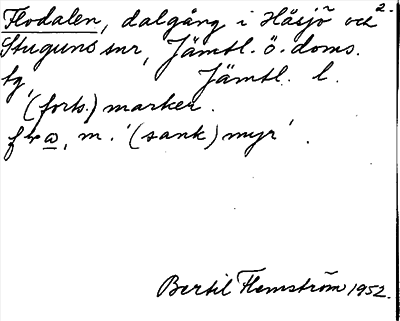 2.
Flodalen, dalgång i Häsjö och
Stuguns snr, Jämtl. ö. doms.
tg, Jämtl. l.
(forts.) marker.
flo, m. '(sank) myr'.
Bertil Flemström 1952.